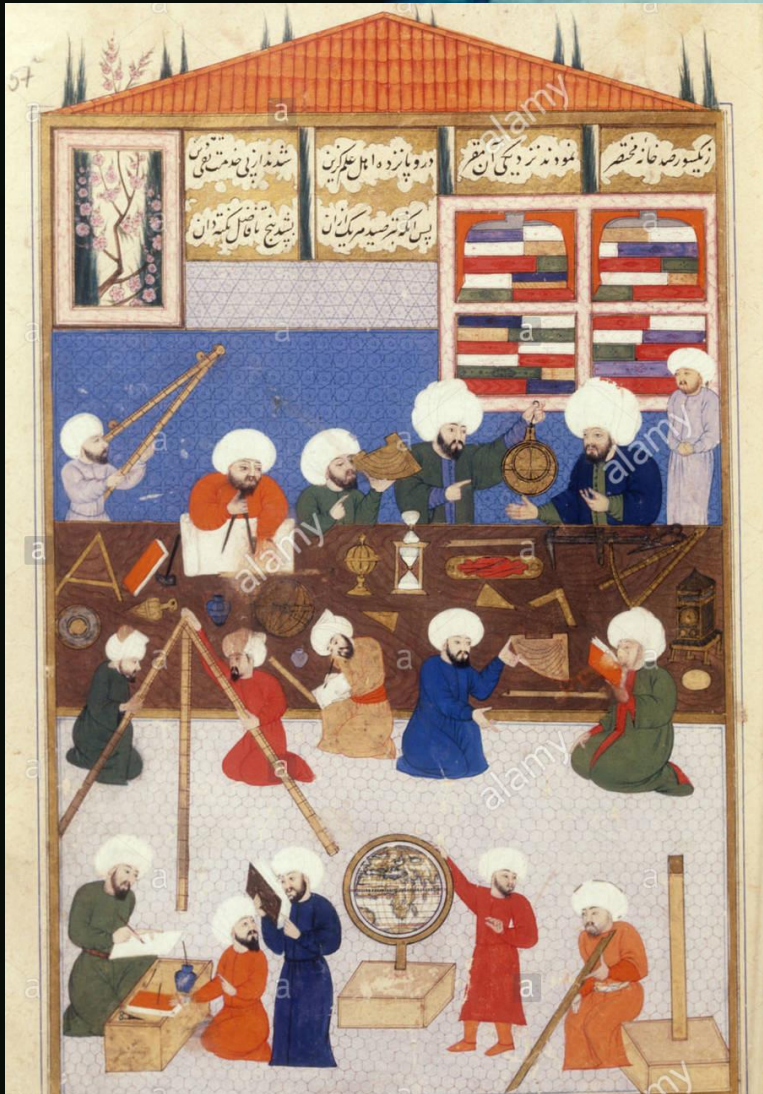 57
زیکسو رصد خانهٔ مختصر
نمودند نزدیکی آن مقر
درو پانزده اهل علم گزین
شدند از پی خدمت تقی
پس آنکه بترصید هر یک ازان
بشد پنج تا فاضل نکته دان
alamy
alamy
alamy
alamy